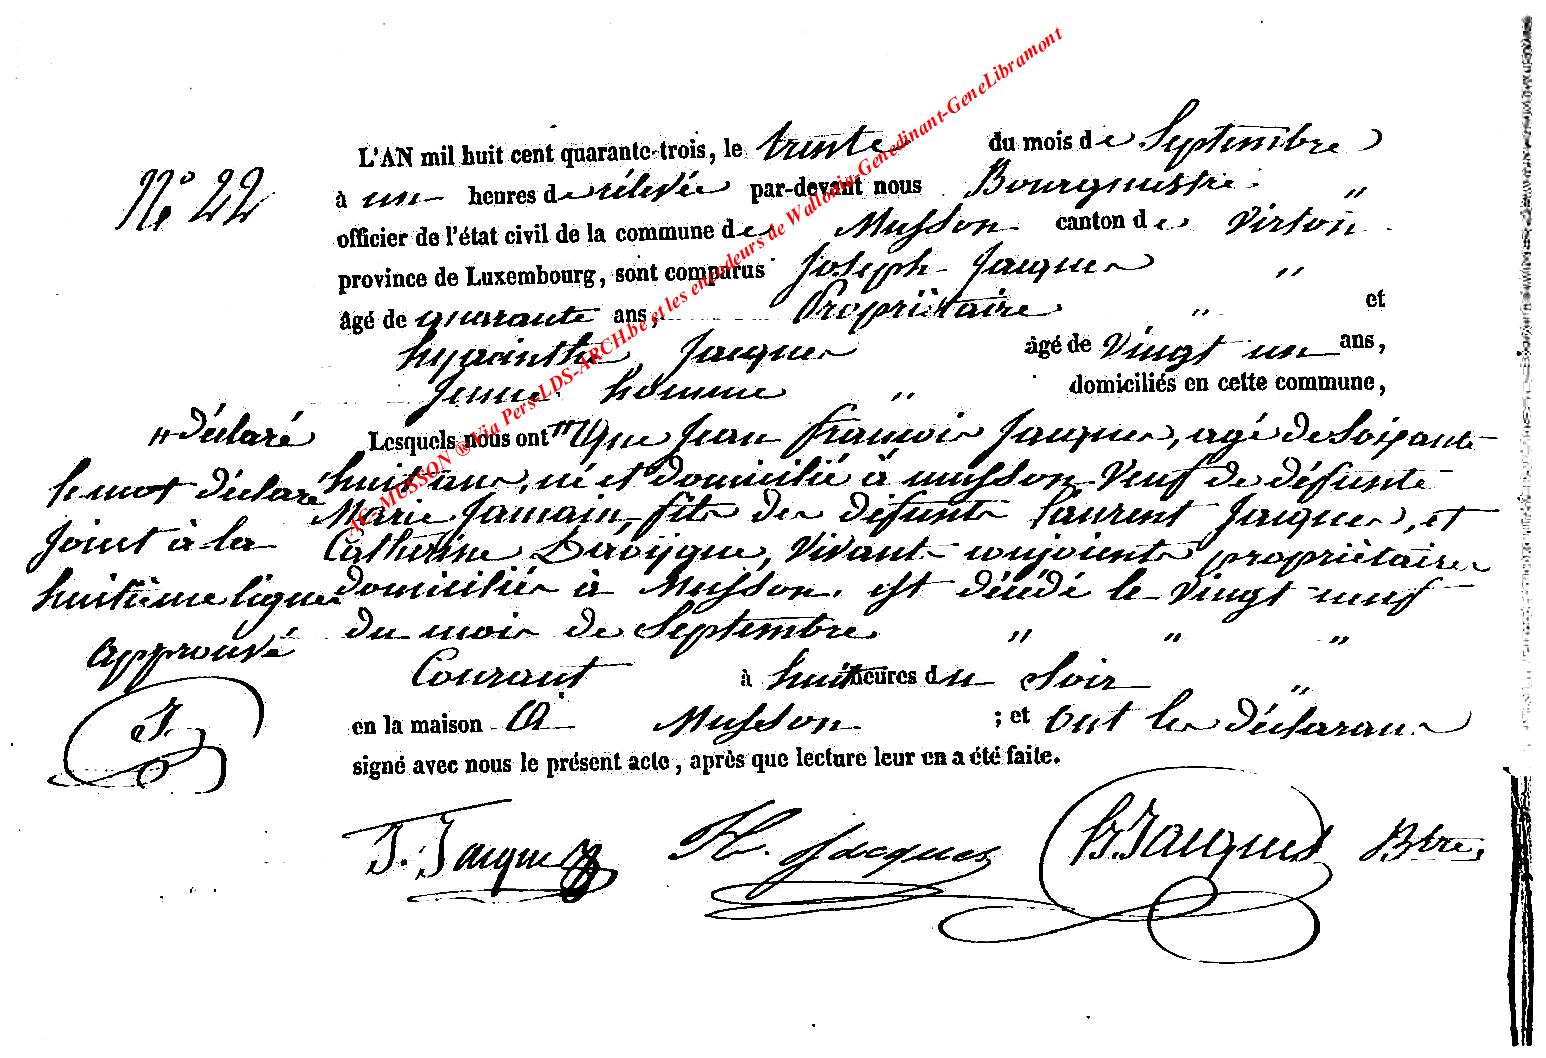 No 22
L'AN mil huit cent quarante-trois, le trente du mois de Septembre
à un heures de rélevée par-devant nous Bourgmestre "
officier de l'état civil de la commune de Musson canton de Virton
province de Luxembourg, sont comparus Joseph Jacques "
âgé de quarante ans, Propriètaire " et
hyacinthe Jacques âgé de Vingt un ans,
jeune homme " domiciliés en cette commune,
Lesquels nous ont Que Jean françois Jacques, agé de Soixante
huit ans, né et domicilié à musson Veuf de défunte
Marie Jamain, fils des défunts laurent Jacques, et
Catherine, Vivant conjoints propriètaires
domiciliés à Musson. est décédé le Vingt neuf
du mois de Septembre " " "
Courant à huit heures du Soir "
en la maison à Musson ; et Ont les déclarans
signé avec nous le présent acte, après que lecture leur en a été faite.
" déclaré
le mot déclaré
joint à la
huitième ligne
approuvé
J.
J. Jacques
H. Jacques
Jacques Btre,
MUSSON ® Via Pers-LDS-ARCH.be et les encodeurs de Wallonia-Genedinant-GeneLibramont